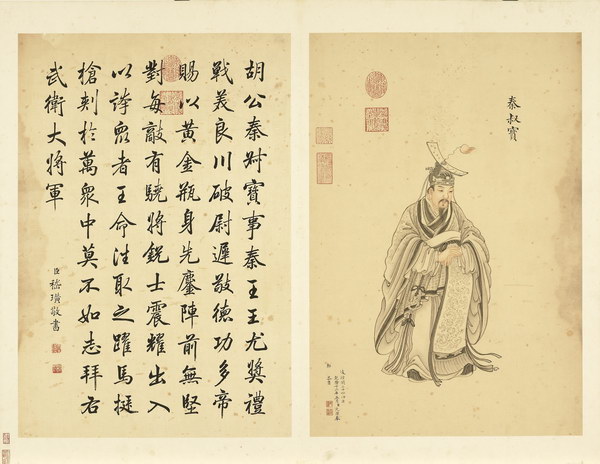 秦叔寶
胡公秦叔寶事秦王王尤獎禮
戰美良川破尉遲敬德功多帝
賜以黃金瓶身先鏖陣前無堅
對每敵有驍將銳士震耀出入
以誇眾者王命往取之躍馬挺
槍刺於萬眾中莫不如志拜右
武衛大將軍
臣嵇璜敬書